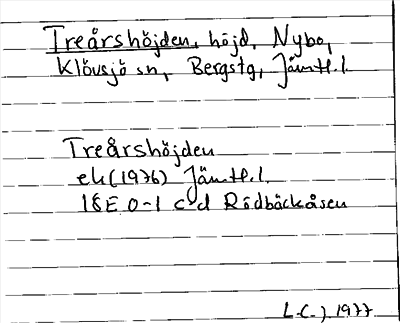 Treårshöjden, höjd, Nybo,
Klövsjö sn, Bergstg, Jämtl. l.
Treårshöjden
ek (1976) Jämtl. l.
18E 0-1 c-d Rödbäckåsen
L.C-) 1977